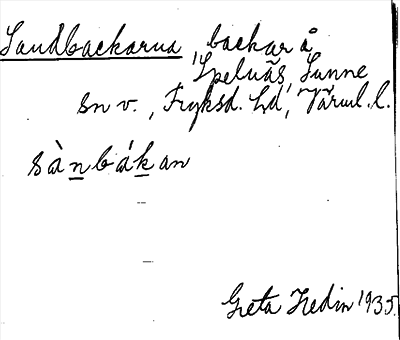 Sandbackarna, backar å
Spelnäs, Sunne
sn v., Fryksd. hd, Värml. l.
sànbákan
Greta Hedin 1935.